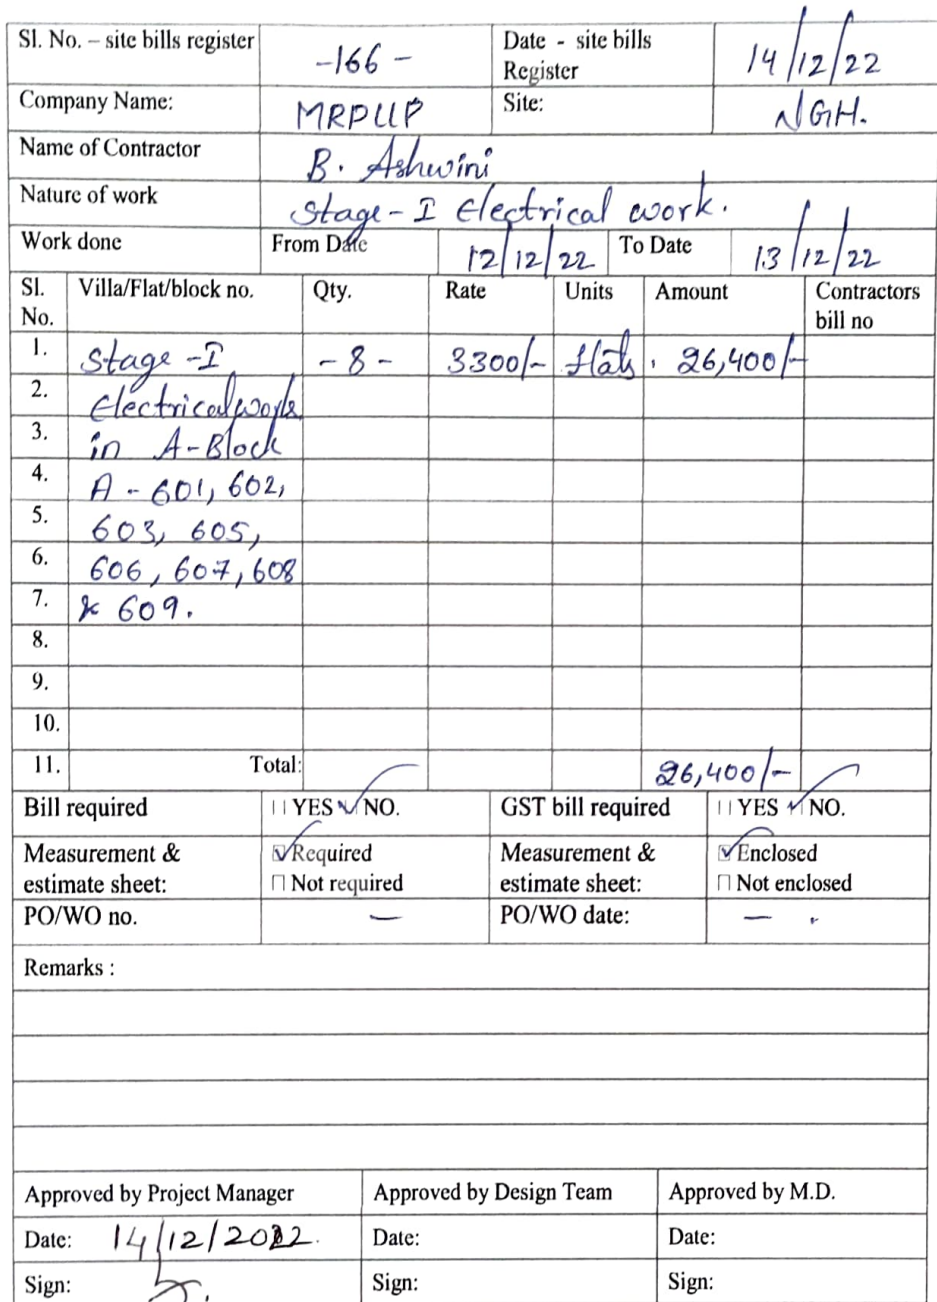 Sl. No. – site bills register -166- Date - site bills Register 14/12/22
Company Name: MRPLLP Site: NGH.
Name of Contractor B. Ashwini
Nature of work Stage-I Electrical work.
Work done From Date 12/12/22 To Date 13/12/22
Sl. No. Villa/Flat/block no. Qty. Rate Units Amount Contractors bill no
1. Stage-I -8- 3300/- flats. 26,400/-
2. Electrical work
3. in A-Block
4. A-601, 602,
5. 603, 605,
6. 606, 607, 608
7. & 609.
8.
9.
10.
11. Total: 26,400/-
Bill required YES NO. GST bill required YES NO.
Measurement & estimate sheet: Required Measurement & estimate sheet: Enclosed
Not required Not enclosed
PO/WO no. — PO/WO date: —
Remarks :
Approved by Project Manager Approved by Design Team Approved by M.D.
Date: 14/12/2022. Date: Date:
Sign: Sign: Sign: